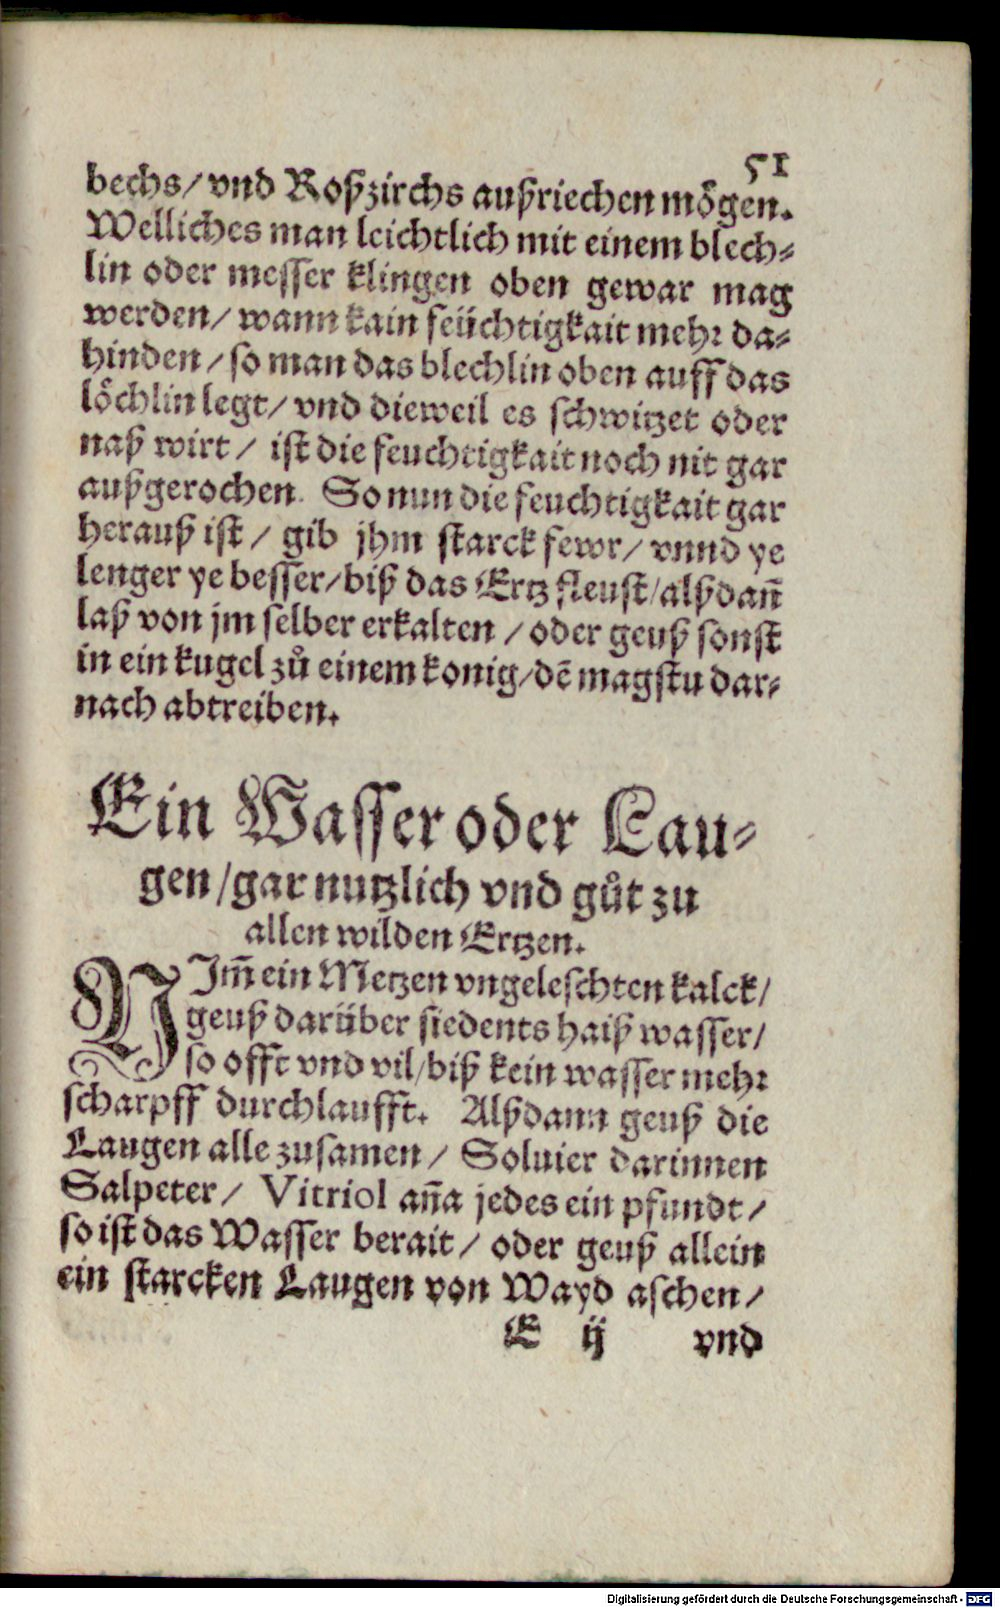 51
bechs/ vnd Roßzirchs außriechen mögen.
Welliches man leichtlich mit einem blech⸗
lin oder messer klingen oben gewar mag
werden/ wann kain feüchtigkait mehr da⸗
hinden/ so man das blechlin oben auff das
löchlin legt/ vnd dieweil es schwitzet oder
naß wirt/ ist die feuchtigkait noch nit gar
außgerochen. So nun die feuchtigkait gar
herauß ist/ gib jhm starck fewr/ vnnd ye
lenger ye besser/ biß das Ertz fleust/ alßdañ
laß von jm selber erkalten/ oder geuß sonst
in ein kugel zů einem konig/ dē magstu dar⸗
nach abtreiben.
Ein Wasser oder Lau⸗
gen/ gar nutzlich vnd gůt zu
allen wilden Ertzen.
NIm̃ ein Metzen vngeleschten kalck/
geuß darüber siedents haiß wasser/
so offt vnd vil/ biß kein wasser mehr
scharpff durchlaufft. Alßdann geuß die
Laugen alle zusamen/ Soluier darinnen
Salpeter/ Vitriol añа jedes ein pfundt/
so ist das Wasser berait/ oder geuß allein
ein starcken Laugen von Wayd aschen/
E ij vnd
Digitalisierung gefördert durch die Deutsche Forschungsgemeinschaft - DFG